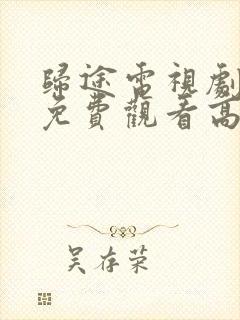 歸途電視劇
免費觀看高
吴存荣